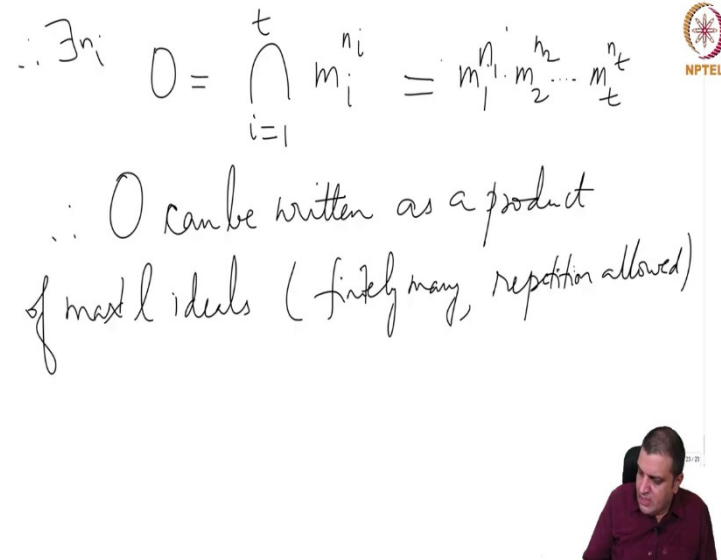 ∴ ∃ nᵢ 0 = ⋂ᵢ₌₁ᵗ mᵢ^{nᵢ} = m₁^{n₁} · m₂^{n₂} ⋯ mₜ^{nₜ}
∴ 0 can be written as a product
of max'l ideals (finitely many, repetition allowed)
NPTEL
23/23